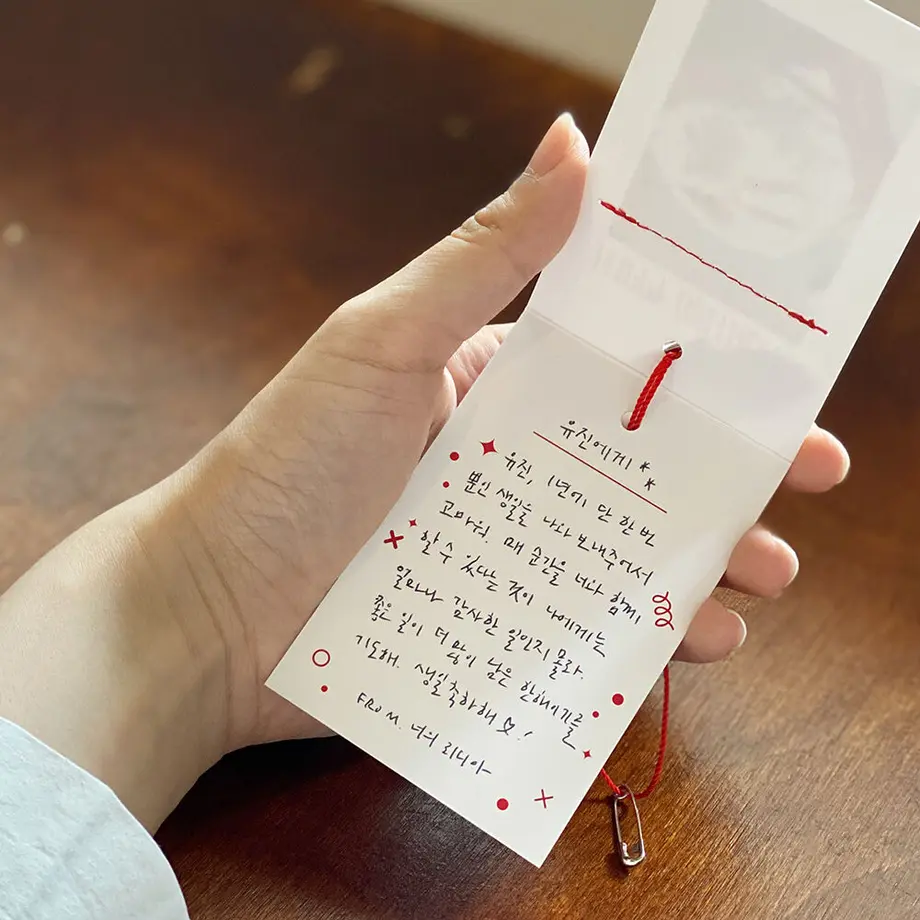 유진에게 **
유진, 1년에 단 한 번
뿐인 생일을 나와 보내주어서
고마워. 매 순간을 너와 함께,
할 수 있다는 것이 나에게는
얼마나 감사한 일인지 몰라.
좋은 일이 더 많이 남은 한해이기를
기도해. 생일축하해♡!
FROM. 너의 리디아